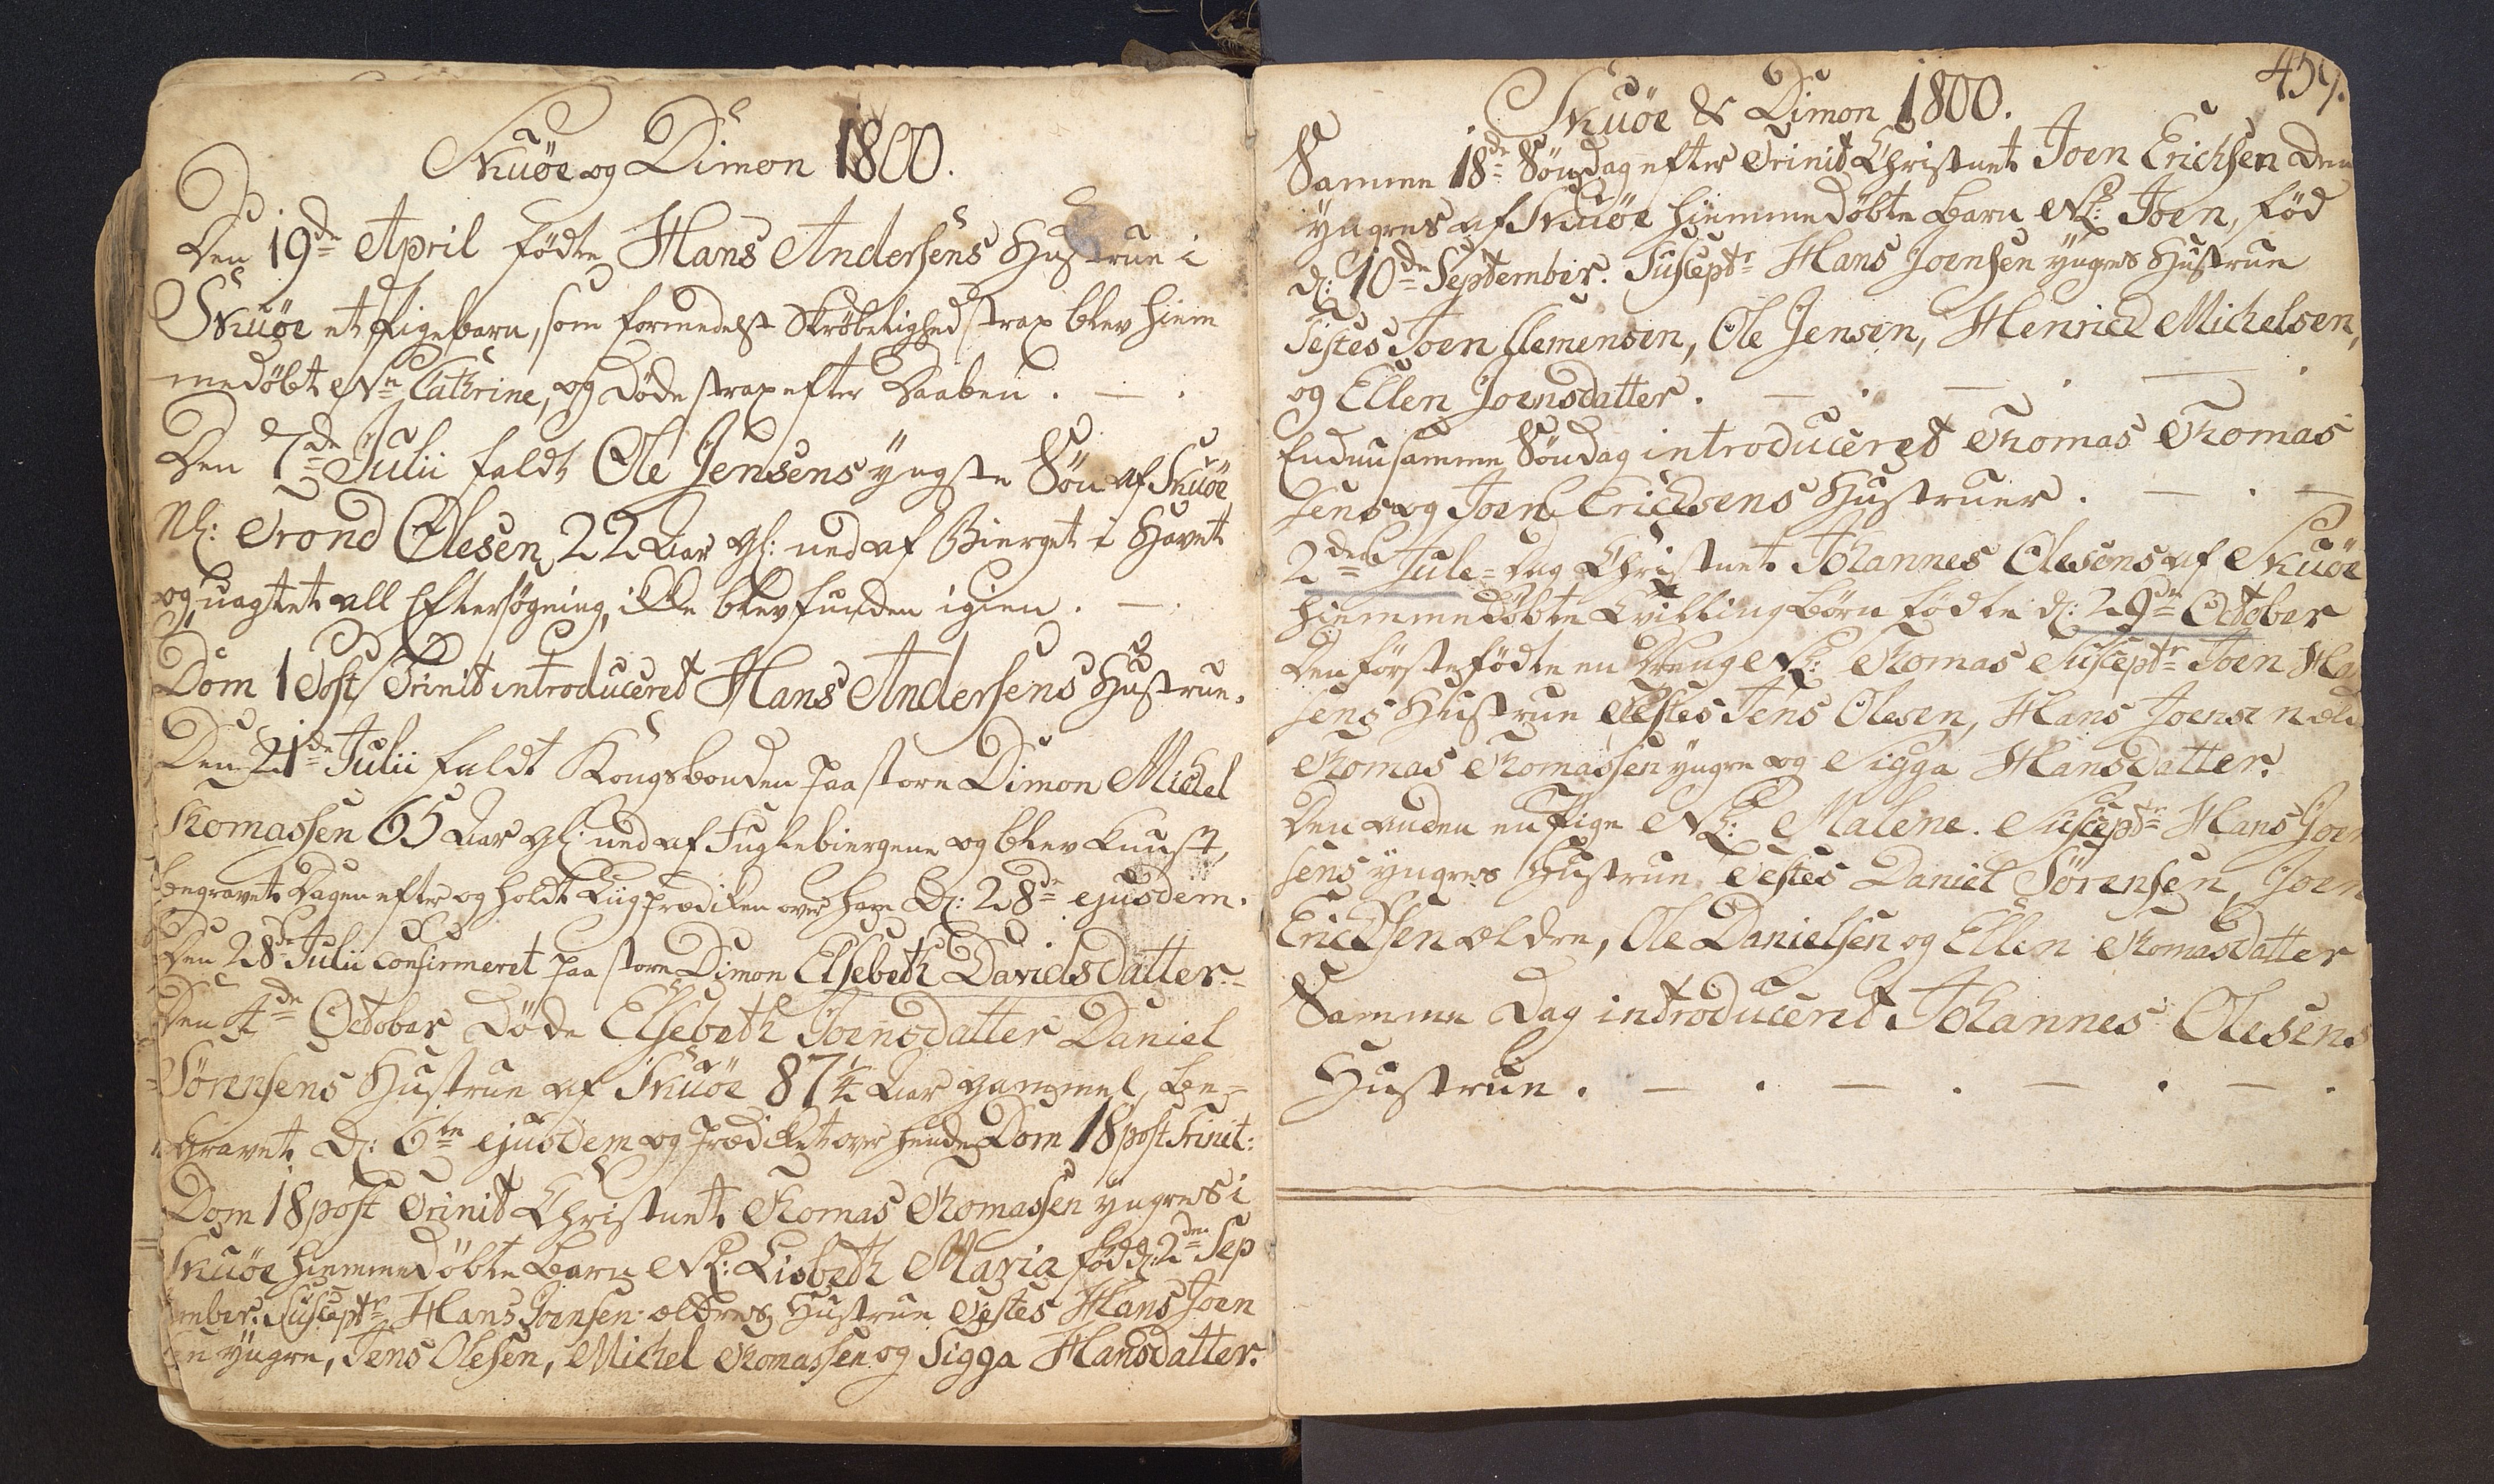 Skuöe og Dimon 1800.
Den 19de April födte Hans Andersens Hustrue i
Skuöe et Pigebarn, som formedelst Skröbelighed strax blev hiem
medöbt Nn Cathrine, og döde strax efter Daaben.
Den 7de Julii faldt Ole Jensens yngste Sön af Skuöe
Nl: Trond Olesen 22 Aar gl: ned af Bierget i Havet
og uagtet all Eftersögning, ikke blev funden igien.
Dom 1 Post Trinit introduceret Hans Andersens Hustrue.
Den 21de Julii faldt Kongsbonden paa store Dimon Michel
Thomassen 65 Aar gl: ned af Fuglebiergene og blev knust,
begravet Dagen efter og holdt Liigprædiken over ham D: 28de ejusdem.
Den 28de Julii confirmeret paa store Dimon Elsebeth Davidsdatter.
Den 4de October döde Elsebeth Joensdatter Daniel
Sörensens Hustrue af Skuöe 87 1/4 Aar gammel, be=
gravet D: 6te ejusdem og prædiket over hende Dom 18 post Trinit:
Dom 18 post Trinit Christnet Thomas Thomassen yngres i
Skuöe hiemmedöbte Barn Nl: Lisbeth Maria föd d: 2den Sep
ember. Susceptr Hans Joensen ældres Hustrue Testes Hans Joen
sen yngre, Jens Olesen, Michel Thomassen og Sigga Hansdatter.
459.
Skuöe & Dimon 1800.
Samme 18de Söndag efter Trinit Christnet Joen Erichsen den
yngres af Skuöe hiemmedöbte Barn Nl: Joen, föd
d: 10de September. Susceptr Hans Joensen yngres Hustrue
Testes Joen Clemensen, Ole Jensen, Henrich Michelsen,
og Ellen Joensdatter.
Endnu samme Söndag introduceret Thomas Thomas
sens og Joen Erichsens Hustruer.
2den Jule=Dag Christnet Johannes Olesens af Skuöe
hiemmedöbte Tvilling Börn födte d: 29de October
Den förstefödte en Dreng Nl: Thomas Susceptr Joen Ha
sens Hustrue Testes Jens Olesen, Hans Joensen æld
Thomas Thomassen yngre og Sigga Hansdatter.
Den anden en Pige Nl: Malene. Susceptr Hans Joen
sens yngres Hustrue. Testes Daniel Sörensen, Joen
Erichsen ældre, Ole Danielsen og Ellen Thomasdatter
Samme Dag introduceret Johannes Olesens
Hustrue.